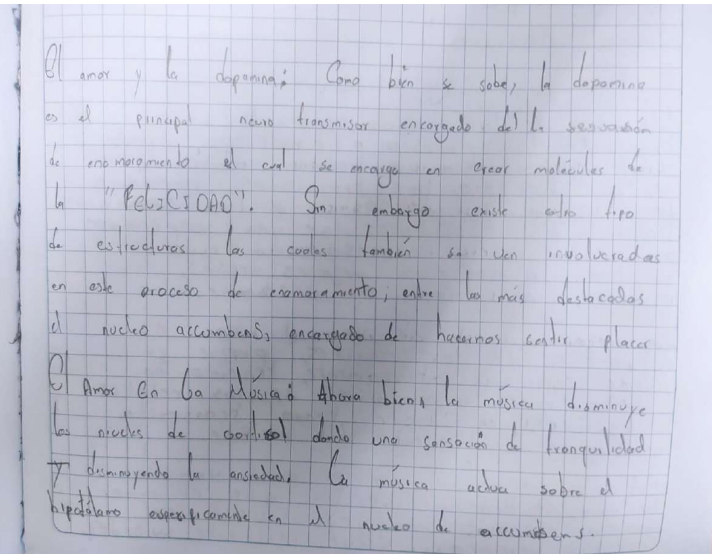 El amor y la dopamina: Como bien se sabe, la dopamina
es el principal neuro transmisor encargado del la sensación
de enamoramiento el cual se encarga en crear moléculas de
la "FELICIDAD". Sin embargo existe otro tipo
de estructuras las cuales también se ven involucradas
en este proceso de enamoramiento, entre las más destacadas
el nucleo accumbens, encargado de hacernos sentir placer
El Amor En La Música: Ahora bien, la música disminuye
los niveles de cortisol dando una sensación de tranquilidad
y disminuyendo la ansiedad. La música actua sobre el
hipotálamo especificamente en el nucleo de accumbens.